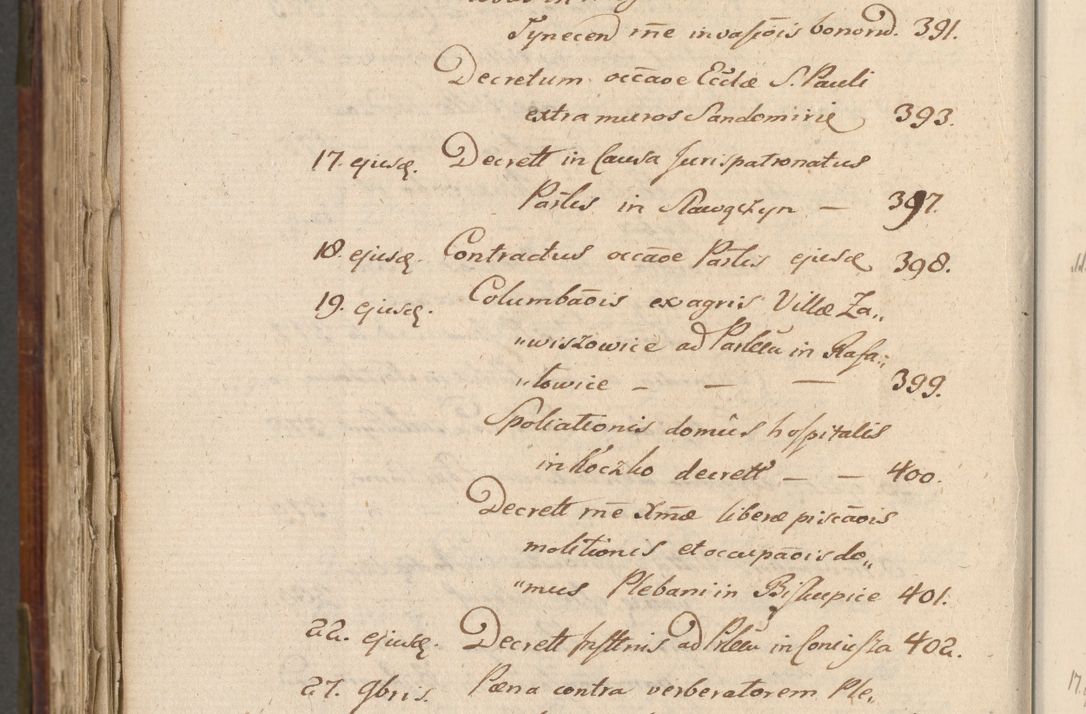 Tynecen̄ rñe invasiōis bonorũ. 391.
Decretum occãoe Ecclæ S. Pauli
extra muros Sandomiriẽ 393.
17. ejusd. Decrett in Causa Jurispatronatus
Parlis in Sławęczyn — 397.
18. ejusd. Contractus occãoe Parlis ejusd 398.
19. ejusd. Columbaõis ex agris Villæ Za„
„wiszowice ad Parlẽa in Rafa„
„towice — — — 399.
Spoliationis domûs hospitalis
in Koczko decrett — — 400.
Decrett rñe Xmæ liberæ piscãois
molitionis et occupãois do„
„mus Plebani in Biskupice 401.
22. ejusd. Decrett Insttnis ad Prlẽa in Koniusza 402.
27. 9bris. Pæna contra verberatorem Ple„